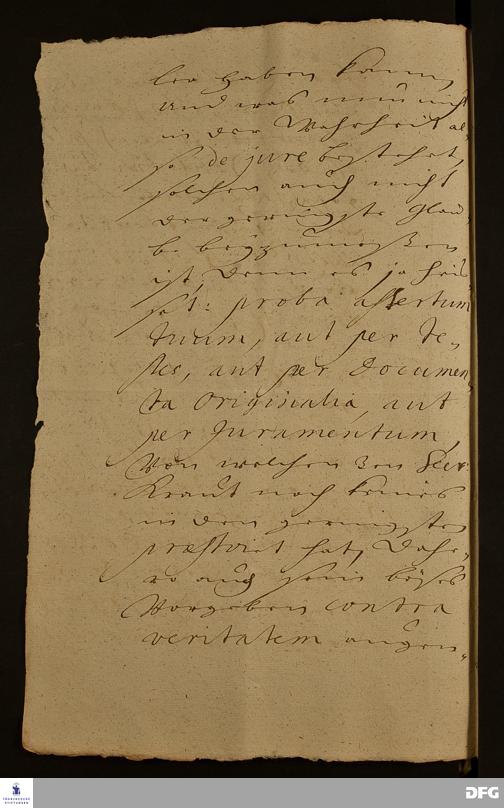 ler haben kann,
und was nun nicht
in der Wahrheit al-
so de jure bestehet,
solchen auch nicht
der geringste Glau-
be beyzumeßen
ist, denn es ja heis-
set: proba assertum
tuum, aut per te-
stes, aut per documen-
ta Originalia, aut
per Juramentum,
Von welchen 3en
Kraut noch keines
in dem geringsten
præstiret hat, Dahe-
ro auch sein böses
Vorgeben contra
veritatem augen-
FRANCKESCHE
STIFTUNGEN
DFG